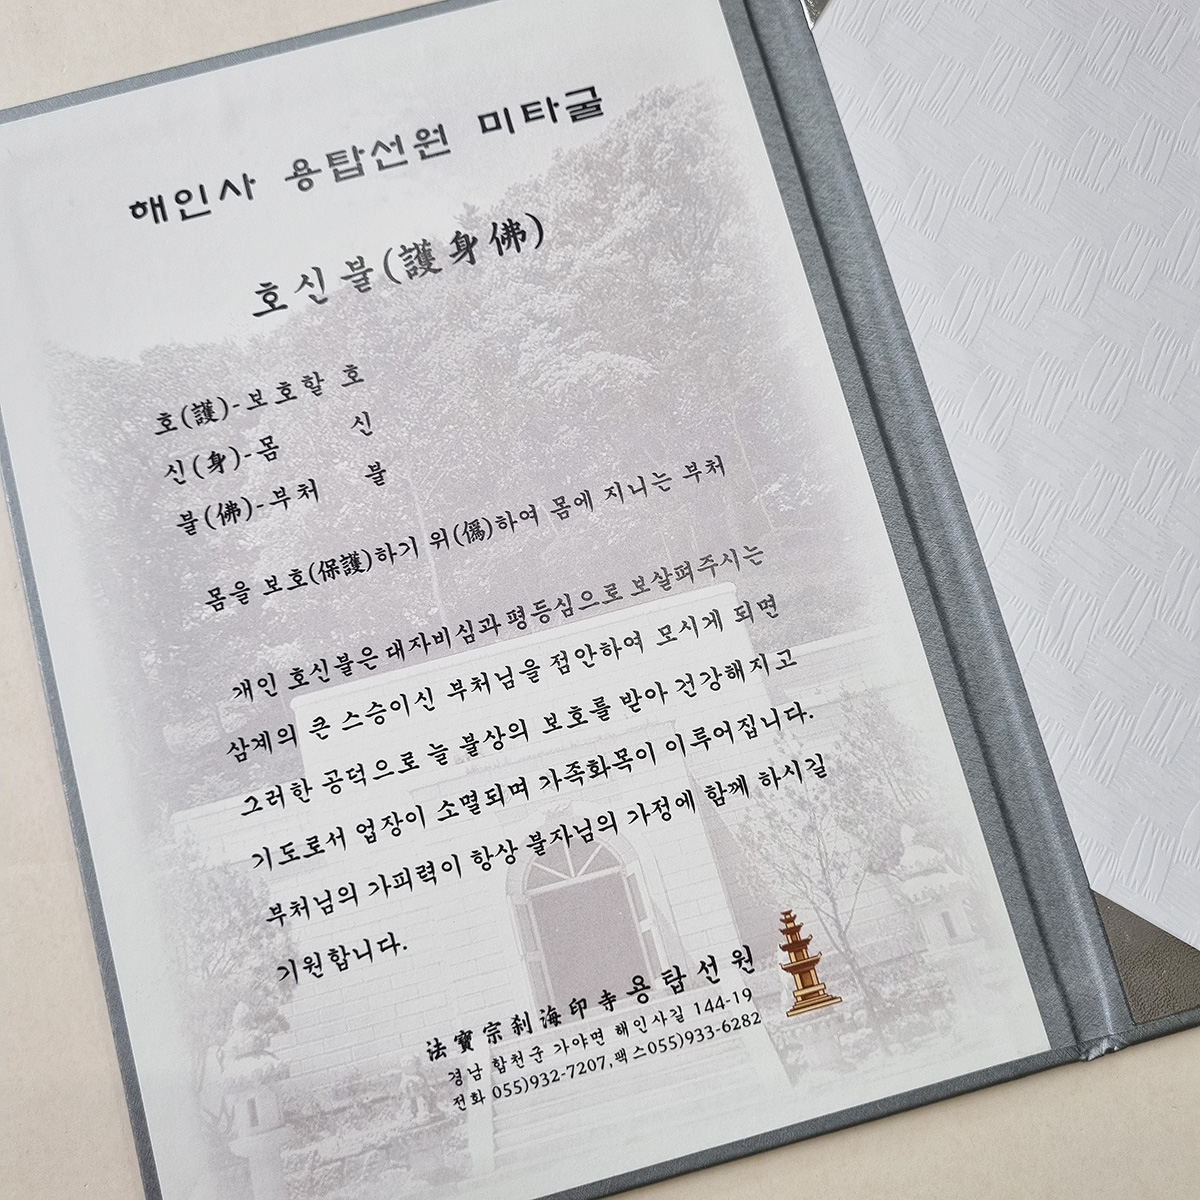 해인사 용탑선원 미타굴
호신불(護身佛)
호(護)-보호할 호
신(身)-몸 신
불(佛)-부처 불
몸을 보호(保護)하기 위(僞)하여 몸에 지니는 부처
개인 호신불은 대자비심과 평등심으로 보살펴주시는
삼계의 큰 스승이신 부처님을 점안하여 모시게 되면
그러한 공덕으로 늘 불상의 보호를 받아 건강해지고
기도로서 업장이 소멸되며 가족화목이 이루어집니다.
부처님의 가피력이 항상 불자님의 가정에 함께 하시길
기원합니다.
法寶宗刹海印寺용탑선원
경남 합천군 가야면 해인사길 144-19
전화 055)932-7207,팩스055)933-6282